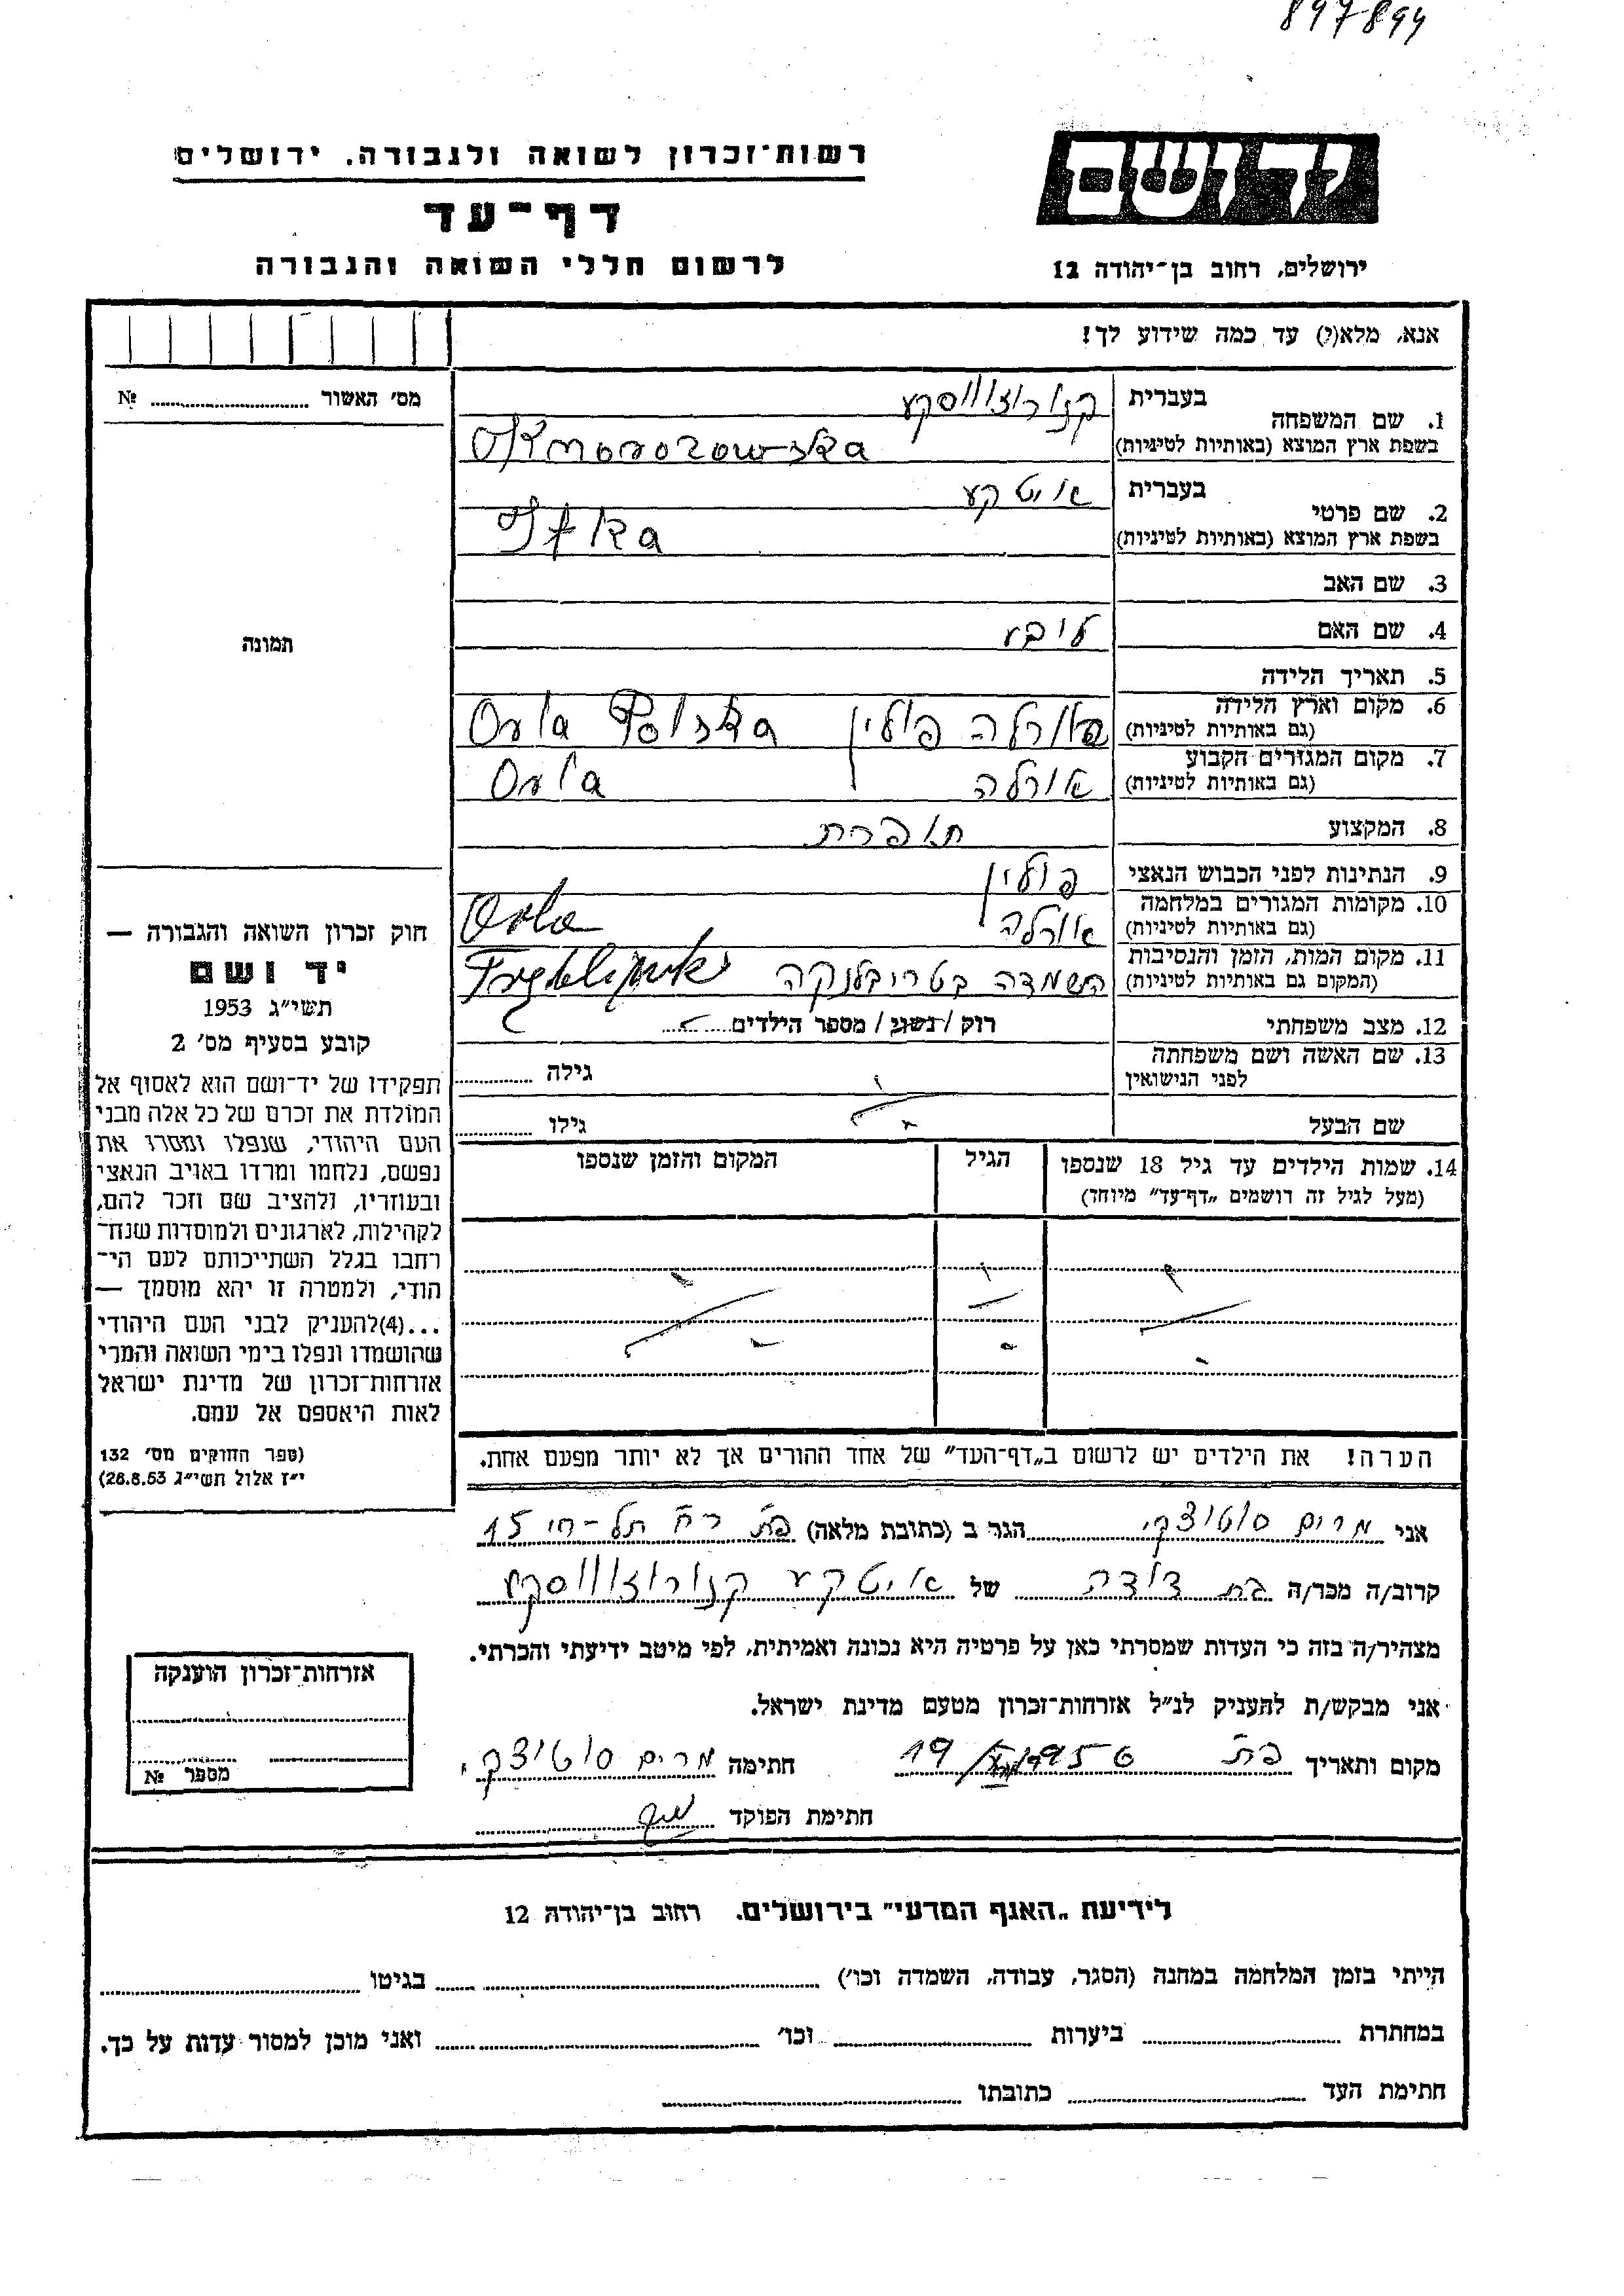 897894
רשות־זכרון לשואה ולגבורה. ירושלים
יד ושם
דף־עד
לרשום חללי השואה והגבורה
ירושלים, רחוב בן־יהודה 12
אנא, מלא(י) עד כמה שידוע לך!
מס׳ האשור № ........
1. שם המשפחה
בעברית
בשפת ארץ המוצא (באותיות לטיניות)
2. שם פרטי
בעברית איטקע
בשפת ארץ המוצא (באותיות לטיניות) Itka
3. שם האב
4. שם האם ליבע
תמונה
5. תאריך הלידה
6. מקום וארץ הלידה
(גם באותיות לטיניות) אורלה פולין Orla Polska
7. מקום המגורים הקבוע
(גם באותיות לטיניות) אורלה Orla
8. המקצוע תופרת
9. הנתינות לפני הכבוש הנאצי פולין
10. מקומות המגורים במלחמה
(גם באותיות לטיניות) אורלה Orla
11. מקום המות, הזמן והנסיבות
(המקום גם באותיות לטיניות) השמדה בטריבלנקה
12. מצב משפחתי רוק / נשוי / מספר הילדים ........
13. שם האשה ושם משפחתה
לפני הנישואין גילה ........
שם הבעל גילו ........
14. שמות הילדים עד גיל 18 שנספו
(מעל לגיל זה רושמים „דף־עד״ מיוחד)
הגיל
המקום והזמן שנספו
חוק זכרון השואה והגבורה —
יד ושם
תשי״ג 1953
קובע בסעיף מס׳ 2
תפקידו של יד־ושם הוא לאסוף אל
המולדת את זכרם של כל אלה מבני
העם היהודי, שנפלו ומסרו את
נפשם, נלחמו ומרדו באויב הנאצי
ובעוזריו, ולהציב שם וזכר להם,
לקהילות, לארגונים ולמוסדות שנח־
רחבו בגלל השתייכותם לעם הי־
הודי, ולמטרה זו יהא מוסמך —
...(4)להעניק לבני העם היהודי
שהושמדו ונפלו בימי השואה והמרי
אזרחות־זכרון של מדינת ישראל
לאות היאספם אל עמם.
(ספר החוקים מס׳ 132
י״ז אלול תשי״ג 28.8.53)
הערה! את הילדים יש לרשום ב„דף־העד״ של אחד ההורים אך לא יותר מפעם אחת.
אני מרים סוטיצקי הגר ב (כתובת מלאה) פ״ת רח׳ תל־חי 15
קרוב/ה מכר/ה בת דודה של איטקע
מצהיר/ה בזה כי העדות שמסרתי כאן על פרטיה היא נכונה ואמיתית, לפי מיטב ידיעתי והכרתי.
אני מבקש/ת להעניק לנ״ל אזרחות־זכרון מטעם מדינת ישראל.
מקום ותאריך פ״ת חתימה מרים סוטיצקי
חתימת הפוקד
אזרחות־זכרון הוענקה
מספר №
לידיעת „האגף המדעי״ בירושלים. רחוב בן־יהודה 12
הייתי בזמן המלחמה במחנה (הסגר, עבודה, השמדה וכו׳) ........ בגיטו ........
במחתרת ........ ביערות ........ וכו׳ ........ ואני מוכן למסור עדות על כך.
חתימת העד ........ כתובתו ........